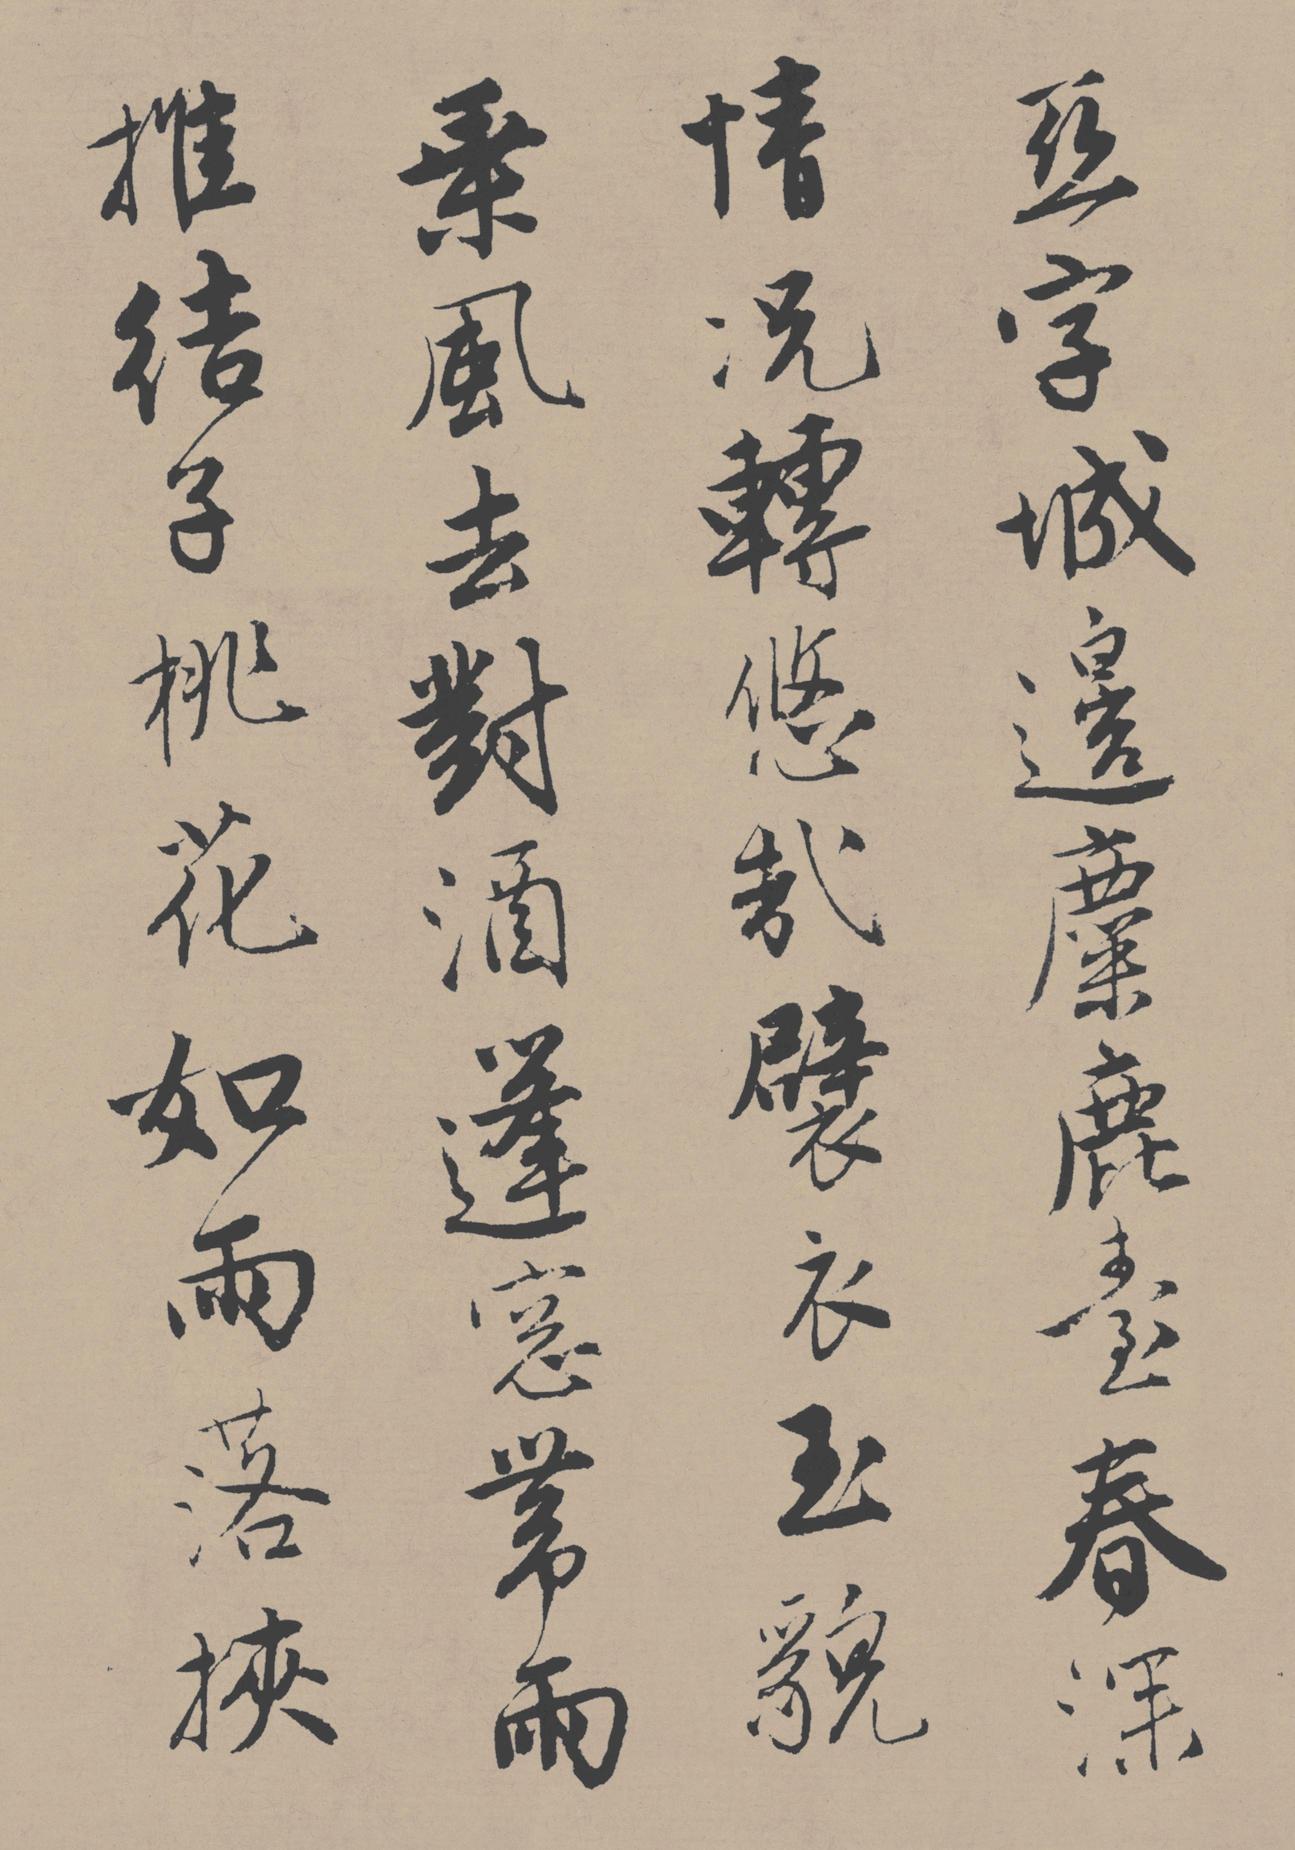 亞字城邊麋鹿臺春深
情況轉悠哉襞衣玉貌
乘風去對酒蓬窓帶雨
推結子桃花如雨落挾